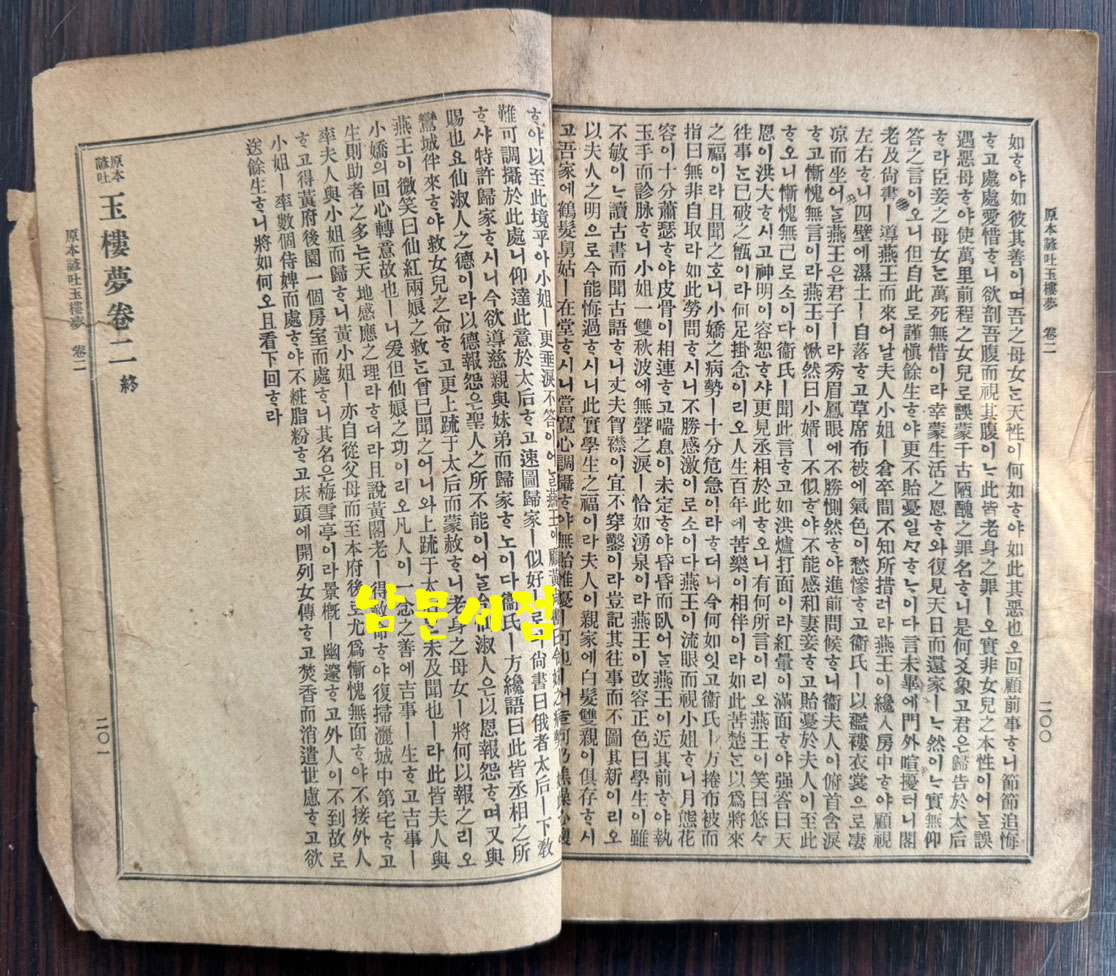 原本諺吐玉樓夢 卷二 二〇〇
如ᄒᆞ야如彼其善이며吾之母女ᄂᆞᆫ天性이何如ᄒᆞ야如此其惡也오回顧前事ᄒᆞ니節節追悔
ᄒᆞ고處處愛惜ᄒᆞ니欲剖吾腹而視其腹이ᄂᆞᆫ此皆老身之罪ㅣ오實非女兒之本性이어ᄂᆞᆯ誤
遇惡母ᄒᆞ야使萬里前程之女兒로誤蒙千古陋醜之罪名ᄒᆞ니是何爻象고君은歸告於太后
ᄒᆞ라臣妾之母女ᄂᆞᆫ萬死無惜이라幸蒙生活之恩ᄒᆞ와復見天日而還家ㅣᄂᆞᆫ然이ᄂᆞᆫ實無仰
答之言이오니但自此로謹愼餘生ᄒᆞ야更不貽憂일ᄭᆞᄒᆞᄂᆞ이다言未畢에門外喧擾터니閣
老及尙書ㅣ導燕王而來어ᄂᆞᆯ夫人小姐ㅣ倉卒間不知所措러라燕王이纔入房中ᄒᆞ야顧視
左右ᄒᆞ니四壁에濕土ㅣ自落ᄒᆞ고草席布被에氣色이愁慘ᄒᆞ고衞氏ㅣ以襤褸衣裳으로凄
凉而坐어ᄂᆞᆯ燕王은君子ㅣ라秀眉鳳眼에不勝惻然ᄒᆞ야進前問候ᄒᆞ니衞夫人이俯首含淚
ᄒᆞ고慚愧無言이라燕王이愀然曰小婿ㅣ不似ᄒᆞ야不能感和妻妾ᄒᆞ고貽憂於夫人이至此
ᄒᆞ오니慚愧無己로소이다衞氏ㅣ聞此言ᄒᆞ고如洪爐打面이라紅暈이滿面ᄒᆞ야强答曰天
恩이洪大ᄒᆞ시고神明이容恕ᄒᆞ샤更見丞相於此ᄒᆞ오니有何所言이리오燕王이笑曰悠々
徃事ᄂᆞᆫ已破之甑이라何足掛念이리오人生百年에苦樂이相伴이라如此苦楚ᄂᆞᆫ以爲將來
之福이라且聞之호니小嬌之病勢ㅣ十分危急이라ᄒᆞ더니今何如잇고衞氏ㅣ方捲布被而
指曰無非自取라如此勞問ᄒᆞ시니不勝感激이로소이다燕王이流眼而視小姐ᄒᆞ니月態花
容이十分蕭瑟ᄒᆞ야皮骨이相連ᄒᆞ고喘息이未定ᄒᆞ야昏昏而臥어ᄂᆞᆯ燕王이近其前ᄒᆞ야執
玉手而診脉ᄒᆞ니小姐一雙秋波에無聲之淚ㅣ恰如湧泉이라燕王이改容正色曰學生이雖
不敏이ᄂᆞ讀古書而聞古語ᄒᆞ니丈夫智襟이宜不穿鑿이라豈記其徃事而不圖其新이리오
以夫人之明으로今能悔過ᄒᆞ시니此實學生之福이라夫人이親家에白髮雙親이俱存ᄒᆞ시
고吾家에鶴髮舅姑ㅣ在堂ᄒᆞ시니當寬心調攝ᄒᆞ야無貽惟憂ㅣ可也
ᄒᆞ야以至此境乎아小姐ㅣ更垂淚不答이어ᄂᆞᆯ燕王이顧黃
難可調攝於此處니仰達此意於太后ᄒᆞ고速圖歸家ㅣ似好
로
尙書曰俄者太后ㅣ下敎
ᄒᆞ샤特許歸家ᄒᆞ시니今欲導慈親與妹弟而歸家ᄒᆞ노이다衞氏ㅣ方纔語曰此皆丞相之所
賜也요仙淑人之德이라以德報怨은聖人之所不能이어ᄂᆞᆯ今
淑人은以恩報怨ᄒᆞ며又與
鸞城伴來ᄒᆞ야救女兒之命ᄒᆞ고更上䟽于太后而蒙赦ᄒᆞ니老身之母女ㅣ將何以報之리오
燕王이微笑曰仙紅兩娘之救ᄂᆞᆫ曾已聞之어니와上䟽于太
未及聞也ㅣ라此皆夫人與
小嬌의回心轉意故也ㅣ니爱但仙娘之功이리오凡人이一念之善에吉事ㅣ生ᄒᆞ고吉事ㅣ
生則助者之多ᄂᆞᆫ天地感應之理라ᄒᆞ더라且說黃閣老ㅣ得赦命ᄒᆞ야復掃灑城中第宅ᄒᆞ고
率夫人與小姐而歸ᄒᆞ니黃小姐ㅣ亦自從父母而至本府後로尤爲慚愧無面ᄒᆞ야不接外人
ᄒᆞ고得黃府後園一個房室而處ᄒᆞ니其名은梅雪亭이라景槪ㅣ幽邃ᄒᆞ고外人이不到故로
小姐ㅣ率數個侍婢而處ᄒᆞ야不粧脂粉ᄒᆞ고床頭에開列女傳ᄒᆞ고焚香而消遣世慮ᄒᆞ고欲
送餘生ᄒᆞ니將如何오且看下回ᄒᆞ라
原本諺吐 玉樓夢卷二 終
原本諺吐玉樓夢 卷二 二〇一
남문서점